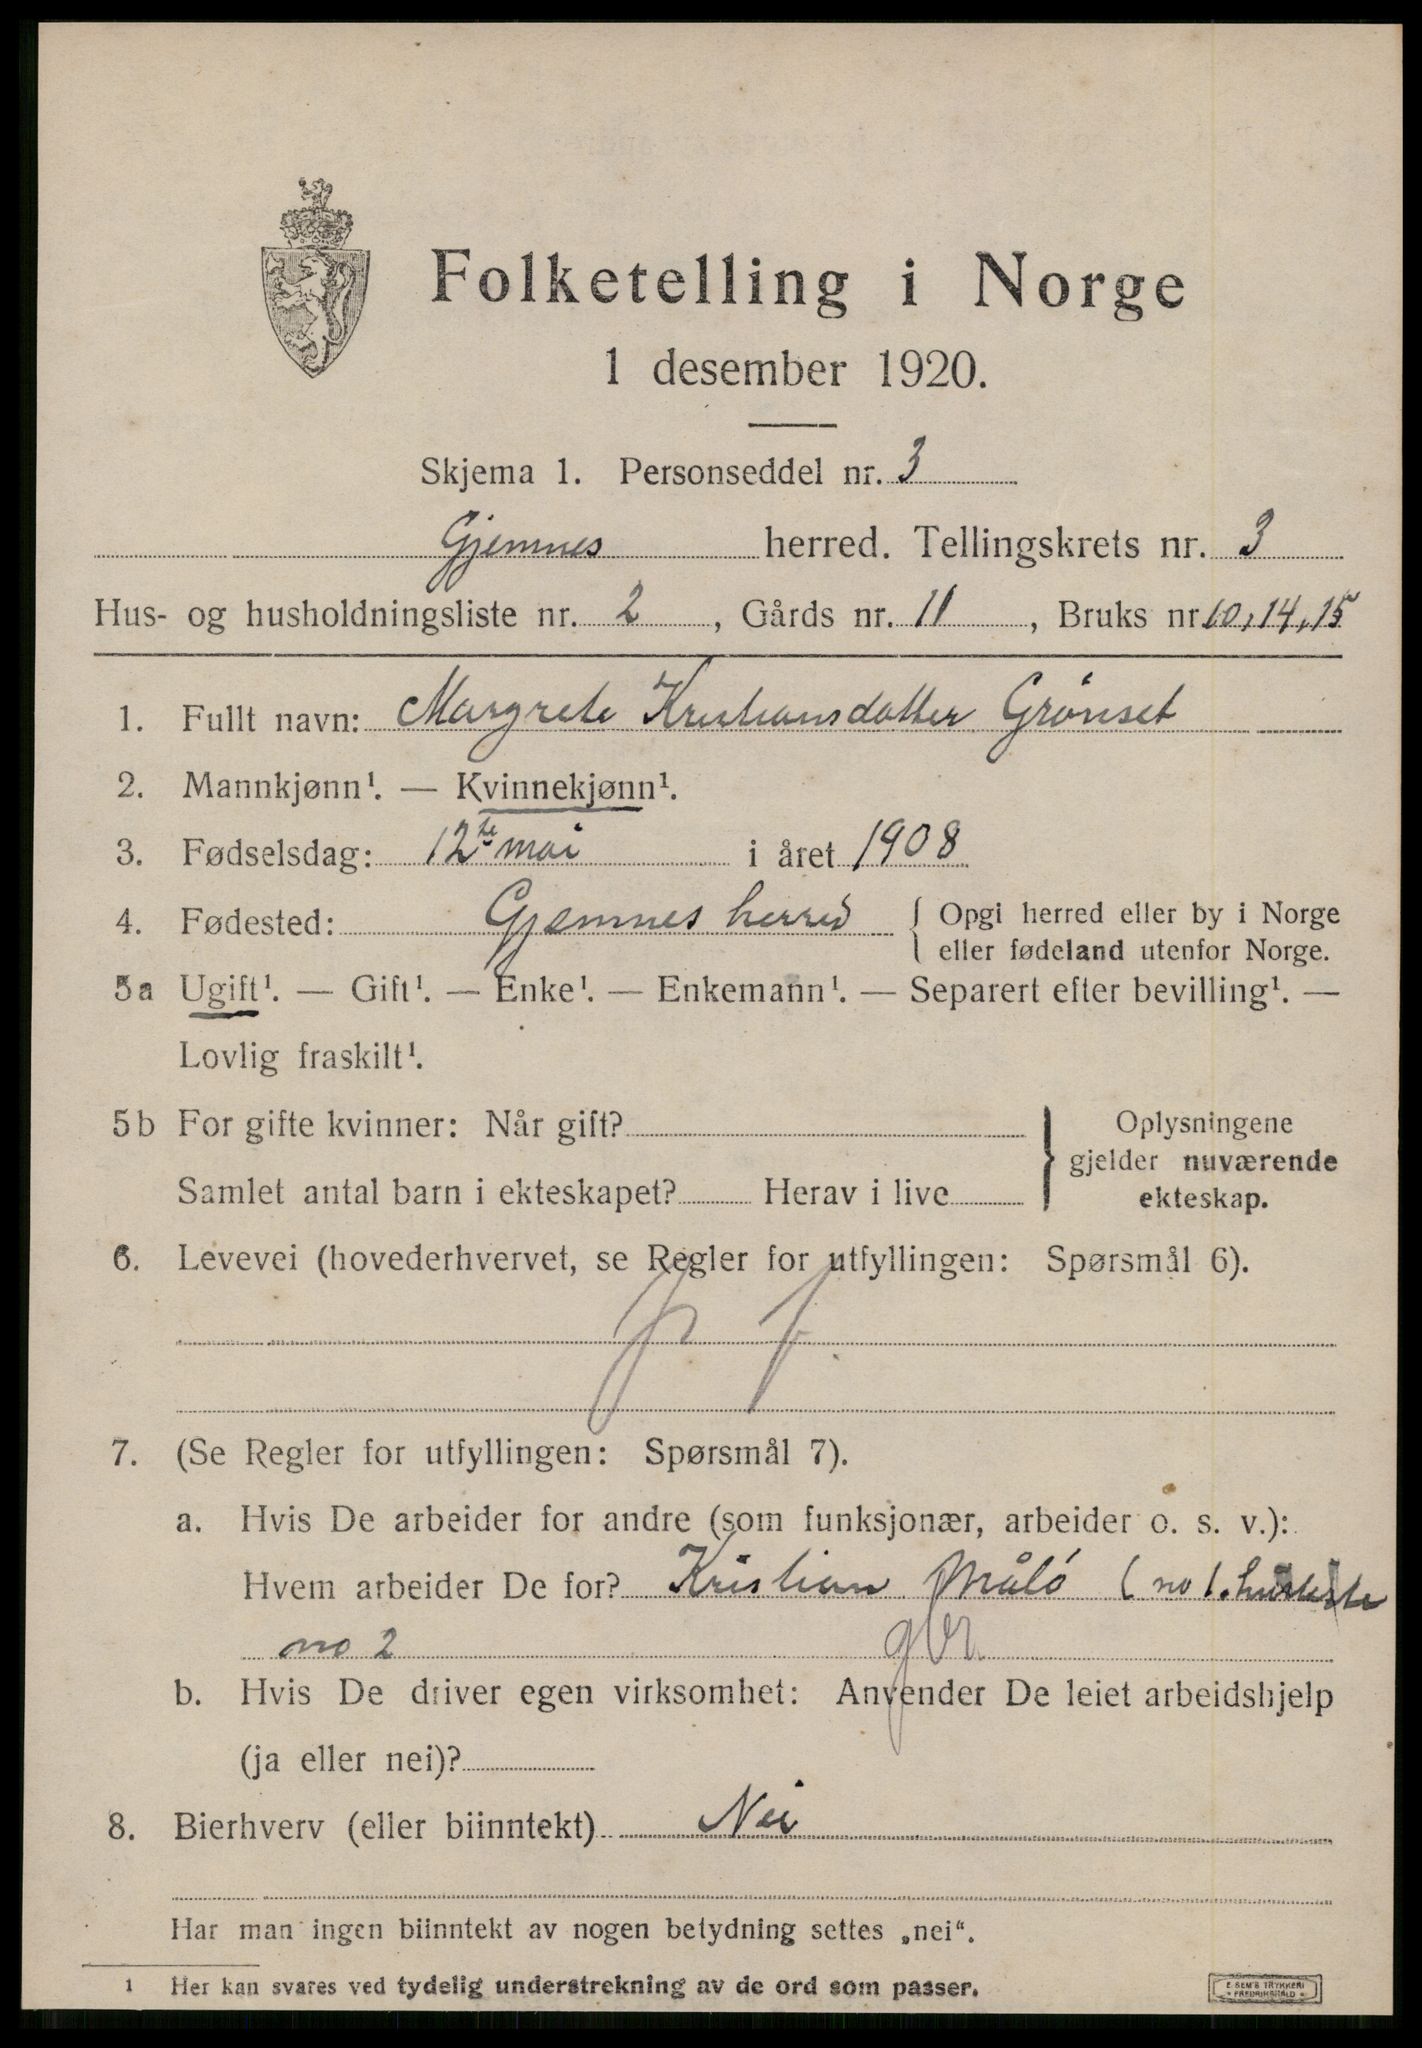 Folketelling i Norge
1 desember 1920.
Skjema 1. Personseddel nr. 3
Gjemnes herred. Tellingskrets nr. 3
Hus- og husholdningsliste nr. 2, Gårds nr. 11, Bruks nr. 10, 14, 15
1. Fullt navn: Margrete Kristiansdatter Grönset
2. Mannkjønn¹. — Kvinnekjønn¹.
3. Fødselsdag: 12te mai i året 1908
4. Fødested: Gjemnes herred { Opgi herred eller by i Norge
eller fødeland utenfor Norge.
5a Ugift¹. — Gift¹. — Enke¹. — Enkemann¹. — Separert efter bevilling¹. —
Lovlig fraskilt¹.
5b For gifte kvinner: Når gift? } Oplysningene
gjelder nuværende
Samlet antal barn i ekteskapet? Herav i live
ekteskap.
6. Levevei (hovederhvervet, se Regler for utfyllingen: Spørsmål 6).
7. (Se Regler for utfyllingen: Spørsmål 7).
a. Hvis De arbeider for andre (som funksjonær, arbeider o. s. v.):
Hvem arbeider De for? Kristian Målö (no 1. husliste
no 2 gbr
b. Hvis De driver egen virksomhet: Anvender De leiet arbeidshjelp
(ja eller nei)?
8. Bierhverv (eller biinntekt) Nei
Har man ingen biinntekt av nogen betydning settes „nei“.
1 Her kan svares ved tydelig understrekning av de ord som passer.
E SEM'S TRYKKERI
* FREDRIKSHALD *